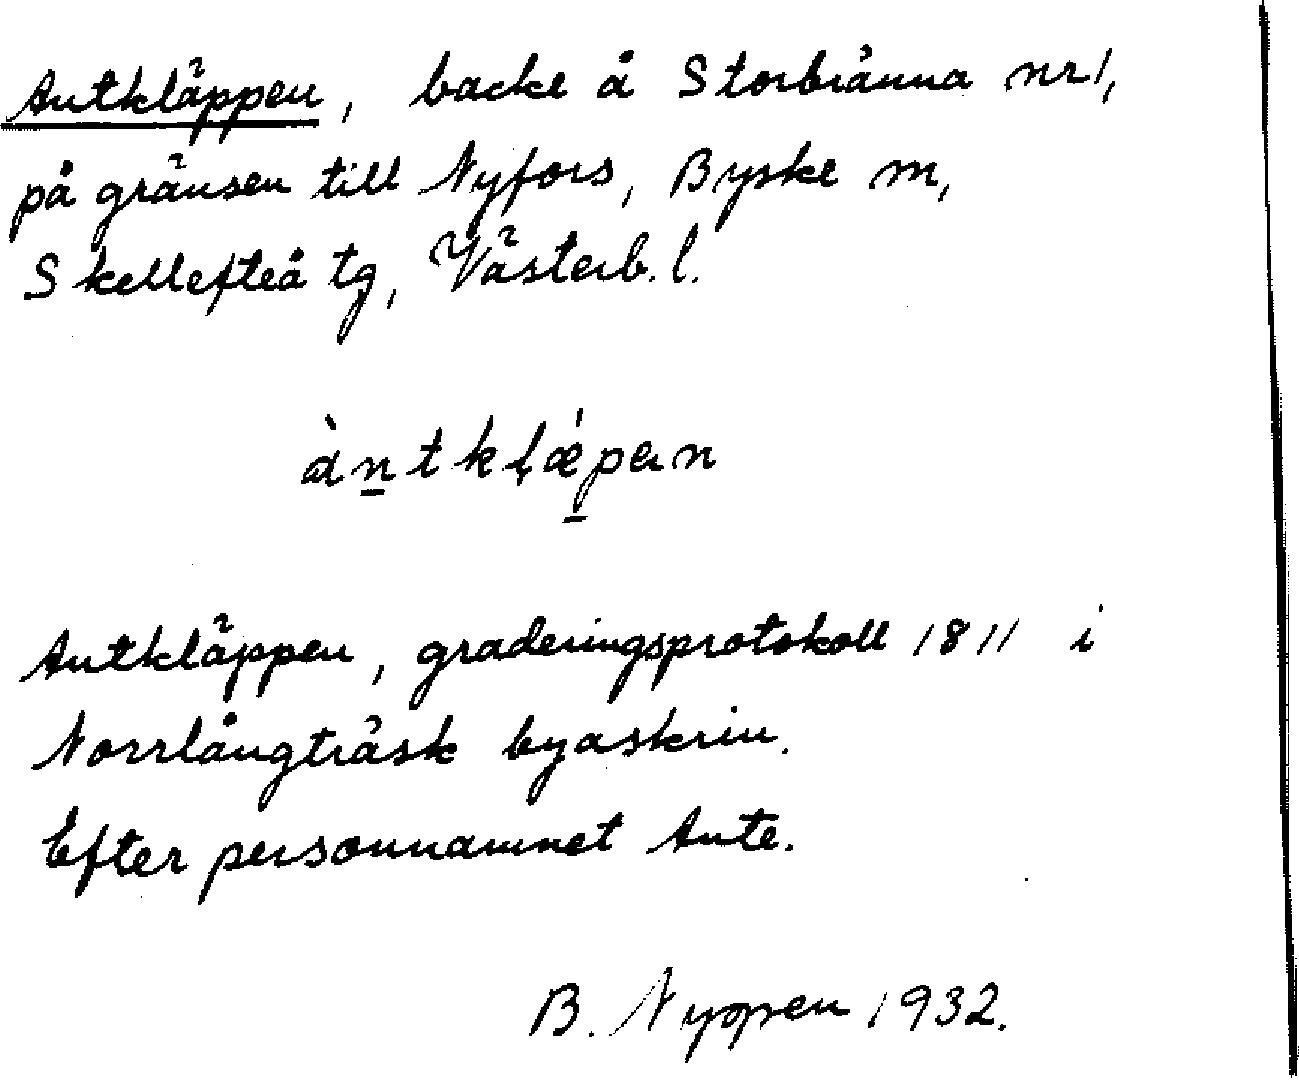 Antkläppen, backe å Storbränna nr 1,
på gränsen till Nyfors, Byske m,
Skellefteå tg, Västerb. l.
àn̲tkḷǽp̲ən
Antkläppen, graderingsprotokoll 1811 i
Norrlångträsk byaskrin.
Efter personnamnet Ante.
B. Nyppen 1932.